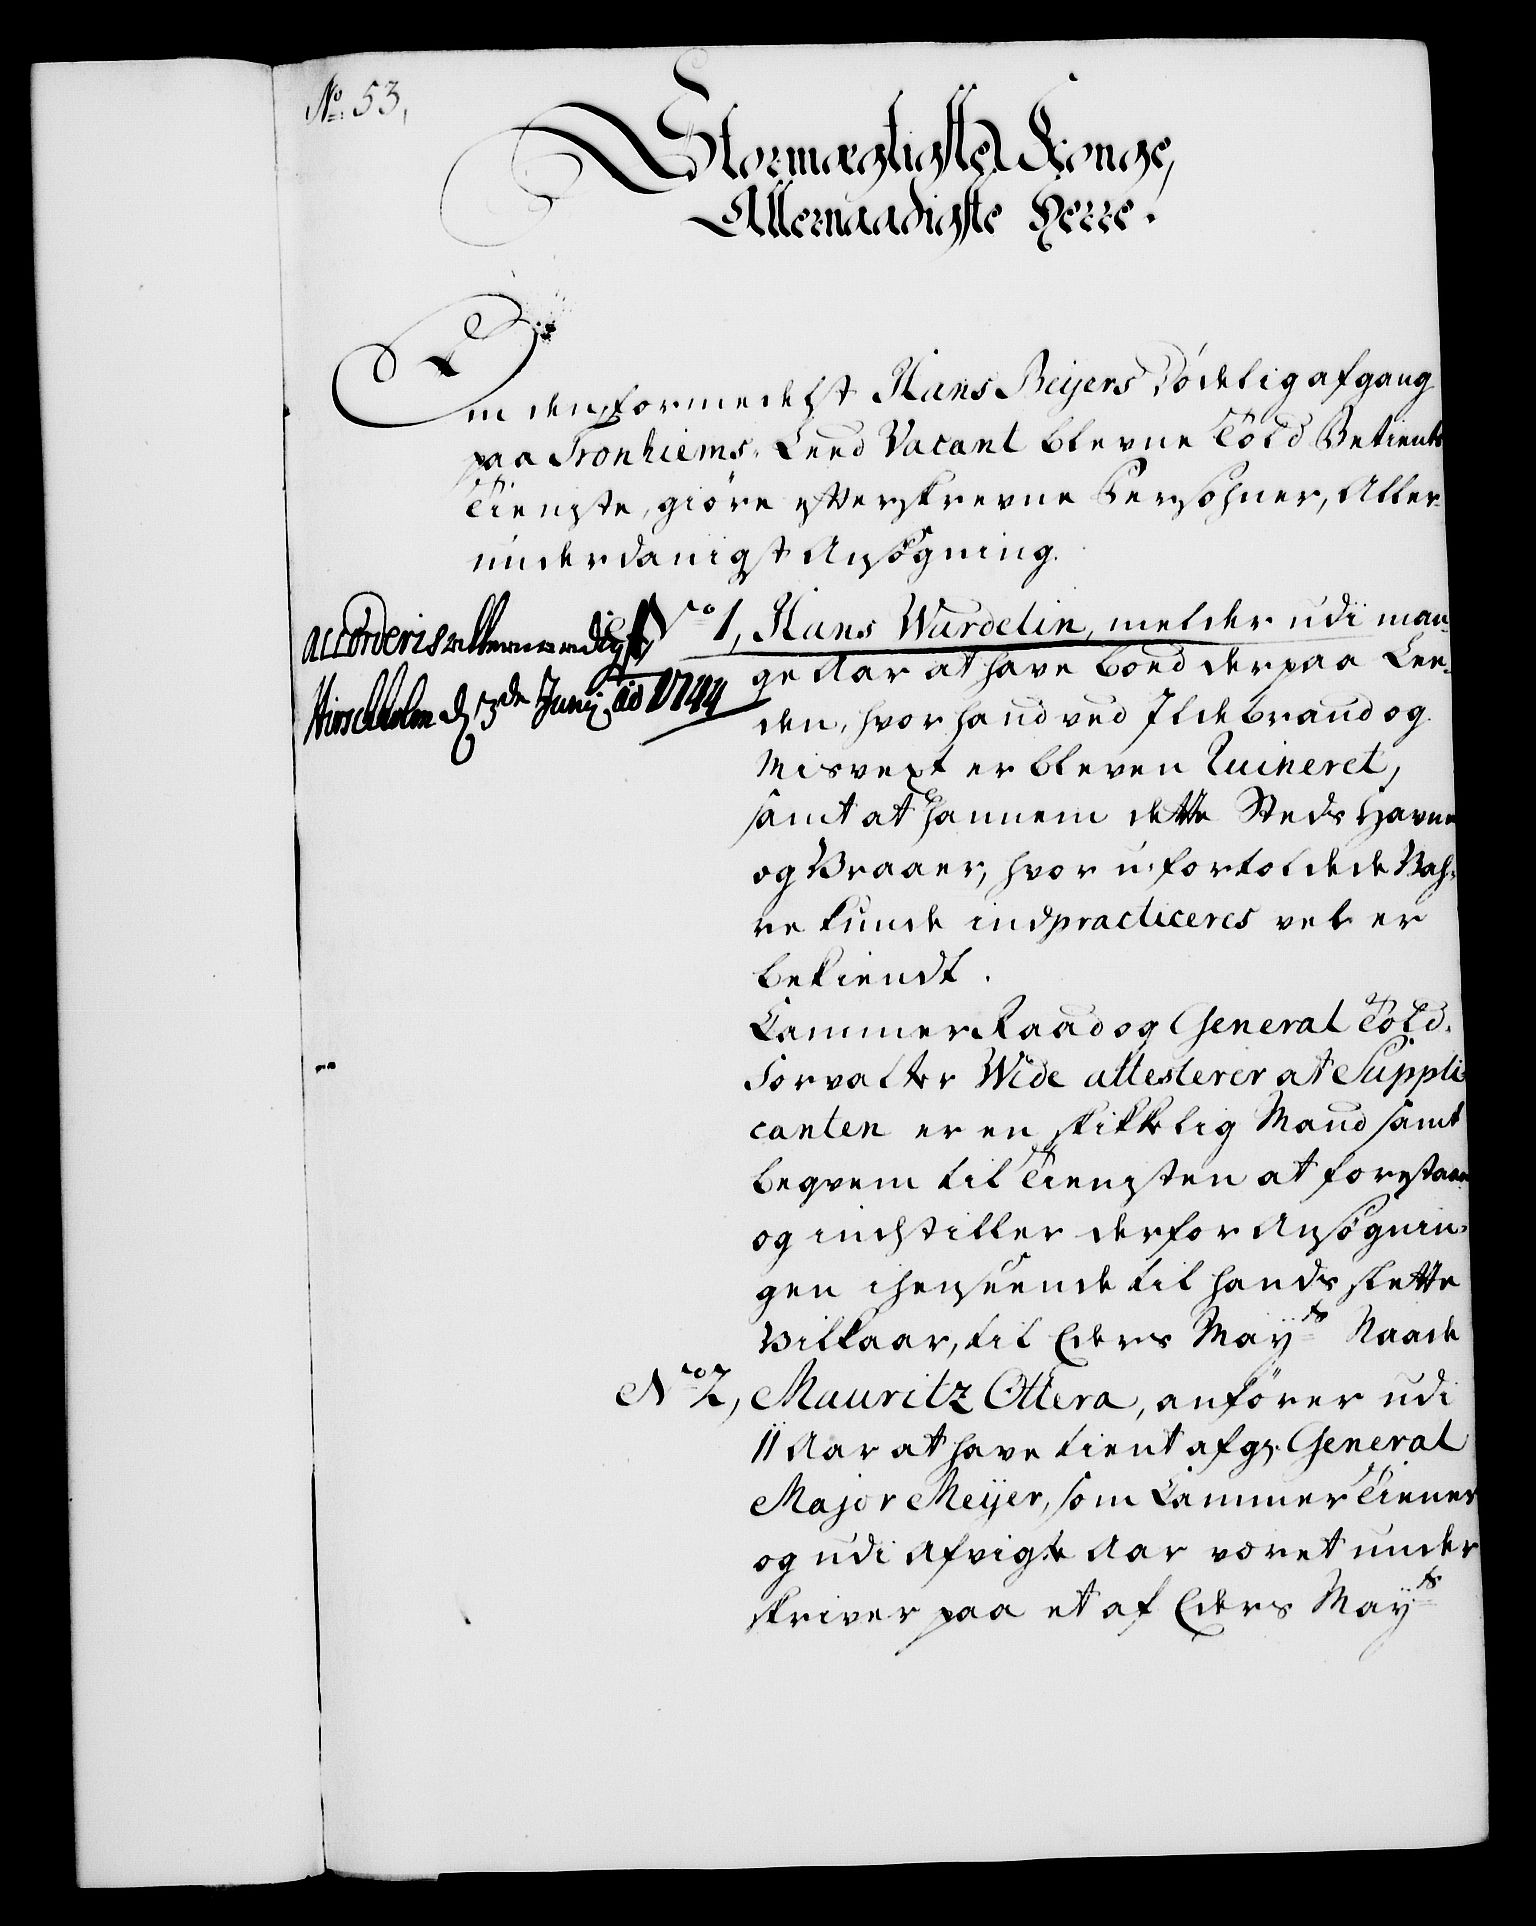 No. 53,
Stormægtigste Konge,
Allernaadigste Herre.
Om den formedelst Hans Beijers Dødelig afgang
paa Tronhiems Leed Vacant blevne Told Betients
Tieniste, giøre efterskrevne Persohner, Aller-
underdanigst Ansøgning.
accorderis allernaadigst
Hirschholm d 3de Junij ao 1744
No 1, Hans Wardelin, melder udi man-
ge Aar at have boed der paa Lee-
den, hvor hand ved Ildebrand og
Misvext er bleven Ruineret,
samt at hannem dette Steds Havne
og Vraaer, hvor ufortoldede Vah-
re kunde indpracticeres vel er
bekiendt.
Cammer Raad og General Told-
Forvalter Wide attesterer at Suppli-
canten er en skikkelig Mand samt
beqvem til Tienisten at forestaae
og indstiller derfor Ansøgnin-
gen i henseende til hands slette
Vilkaar, til Eders Mayts Naade
No 2, Mauritz Ottera, anfører udi
11 Aar at have tient afg. General
Major Meijer, som Cammer Tiener
og udi Afvigte Aar været under
skriver paa et af Eders Mayts